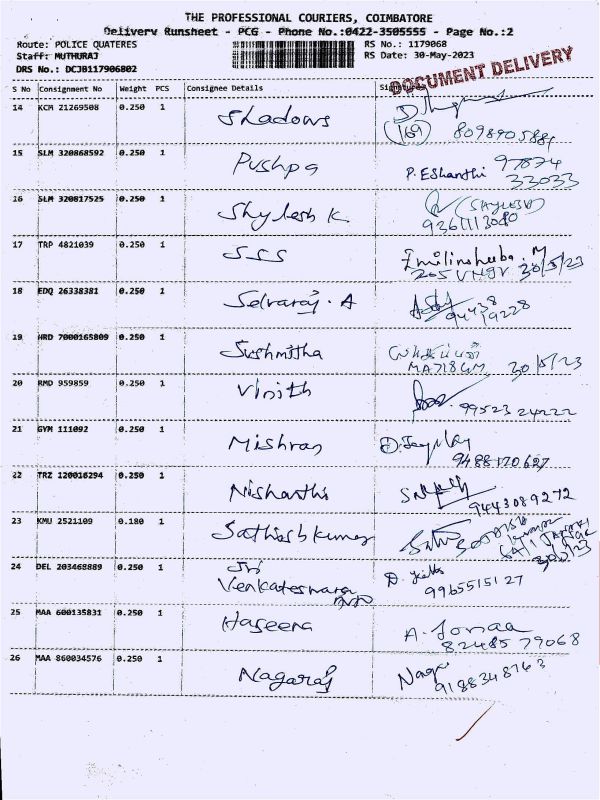 THE PROFESSIONAL COURIERS, COIMBATORE
Delivery Runsheet - PCG - Phone No.:0422-3505555 - Page No.:2
Route: POLICE QUATERES RS No.: 1179068
Staff: MUTHURAJ RS Date: 30-May-2023
DRS No.: DCJB117906802
DOCUMENT DELIVERY
S No Consignment No Weight PCS Consignee Details Signature
14 KCM 21269508 0.250 1 Shadows
169 8098905884
15 SLM 320868592 0.250 1 Pushpa P. Eshanthi 97874
33033
16 SLM 320817525 0.250 1 Shylesh K. (SHYLESH)
9361113080
17 TRP 4821039 0.250 1 SSS Emilinsheeba. M
205 30/5/23
18 EDQ 26338381 0.250 1 Selvaraj. A 94438
19228
19 HRD 7000165809 0.250 1 Sushmitha
30/5/23
20 RMD 959859 0.250 1 Vinith 99523 24222
21 GYM 111092 0.250 1 Mishran
9488170627
22 TRZ 120016294 0.250 1 Nishanthi
9443089272
23 KMU 2521109 0.180 1 Sathish kumar
24 DEL 203468889 0.250 1 Sri
Venkateswara
9965515127
25 MAA 600135831 0.250 1 Haseena A. Jonaa
82485 79068
26 MAA 860034576 0.250 1 Nagaraj Naga
9188348763